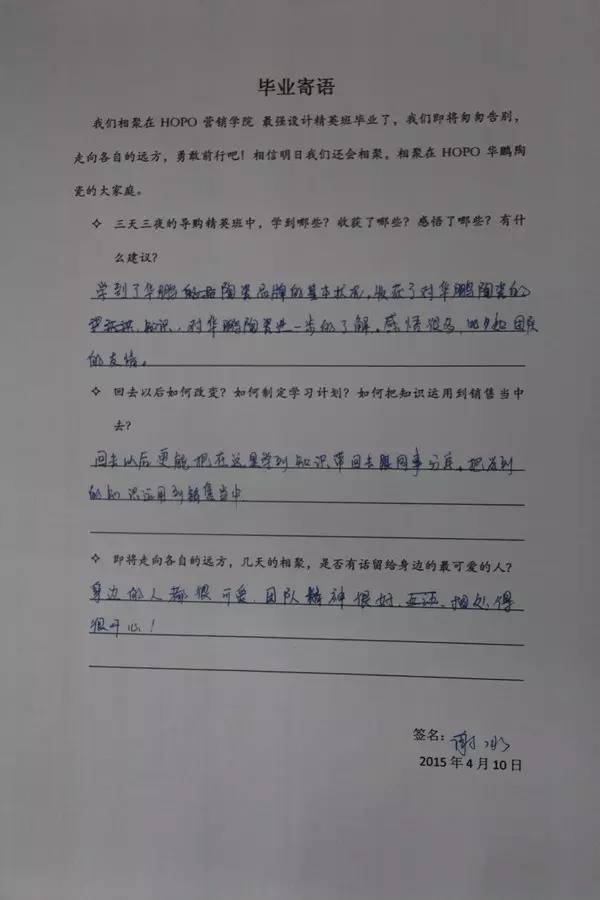 毕业寄语
我们相聚在 HOPO 营销学院 最强设计精英班毕业了，我们即将匆匆告别，
走向各自的远方，勇敢前行吧！相信明日我们还会相聚。相聚在 HOPO 华鹏陶
瓷的大家庭。
✧ 三天三夜的导购精英班中，学到哪些？收获了哪些？感悟了哪些？有什
么建议？
学到了华鹏的陶瓷品牌的基本状况，收获了对华鹏陶瓷的
知识，对华鹏陶瓷进一步的了解。感悟很多，团队
的友情。
✧ 回去以后如何改变？如何制定学习计划？如何把知识运用到销售当中
去？
回去以后更能把在这里学到知识带回去跟同事分享，把学到
的知识运用到销售当中
✧ 即将走向各自的远方，几天的相聚，是否有话留给身边的最可爱的人？
身边的人都很可爱，团队精神很好，相处得
很开心！
签名：谢冰
2015 年 4 月 10 日